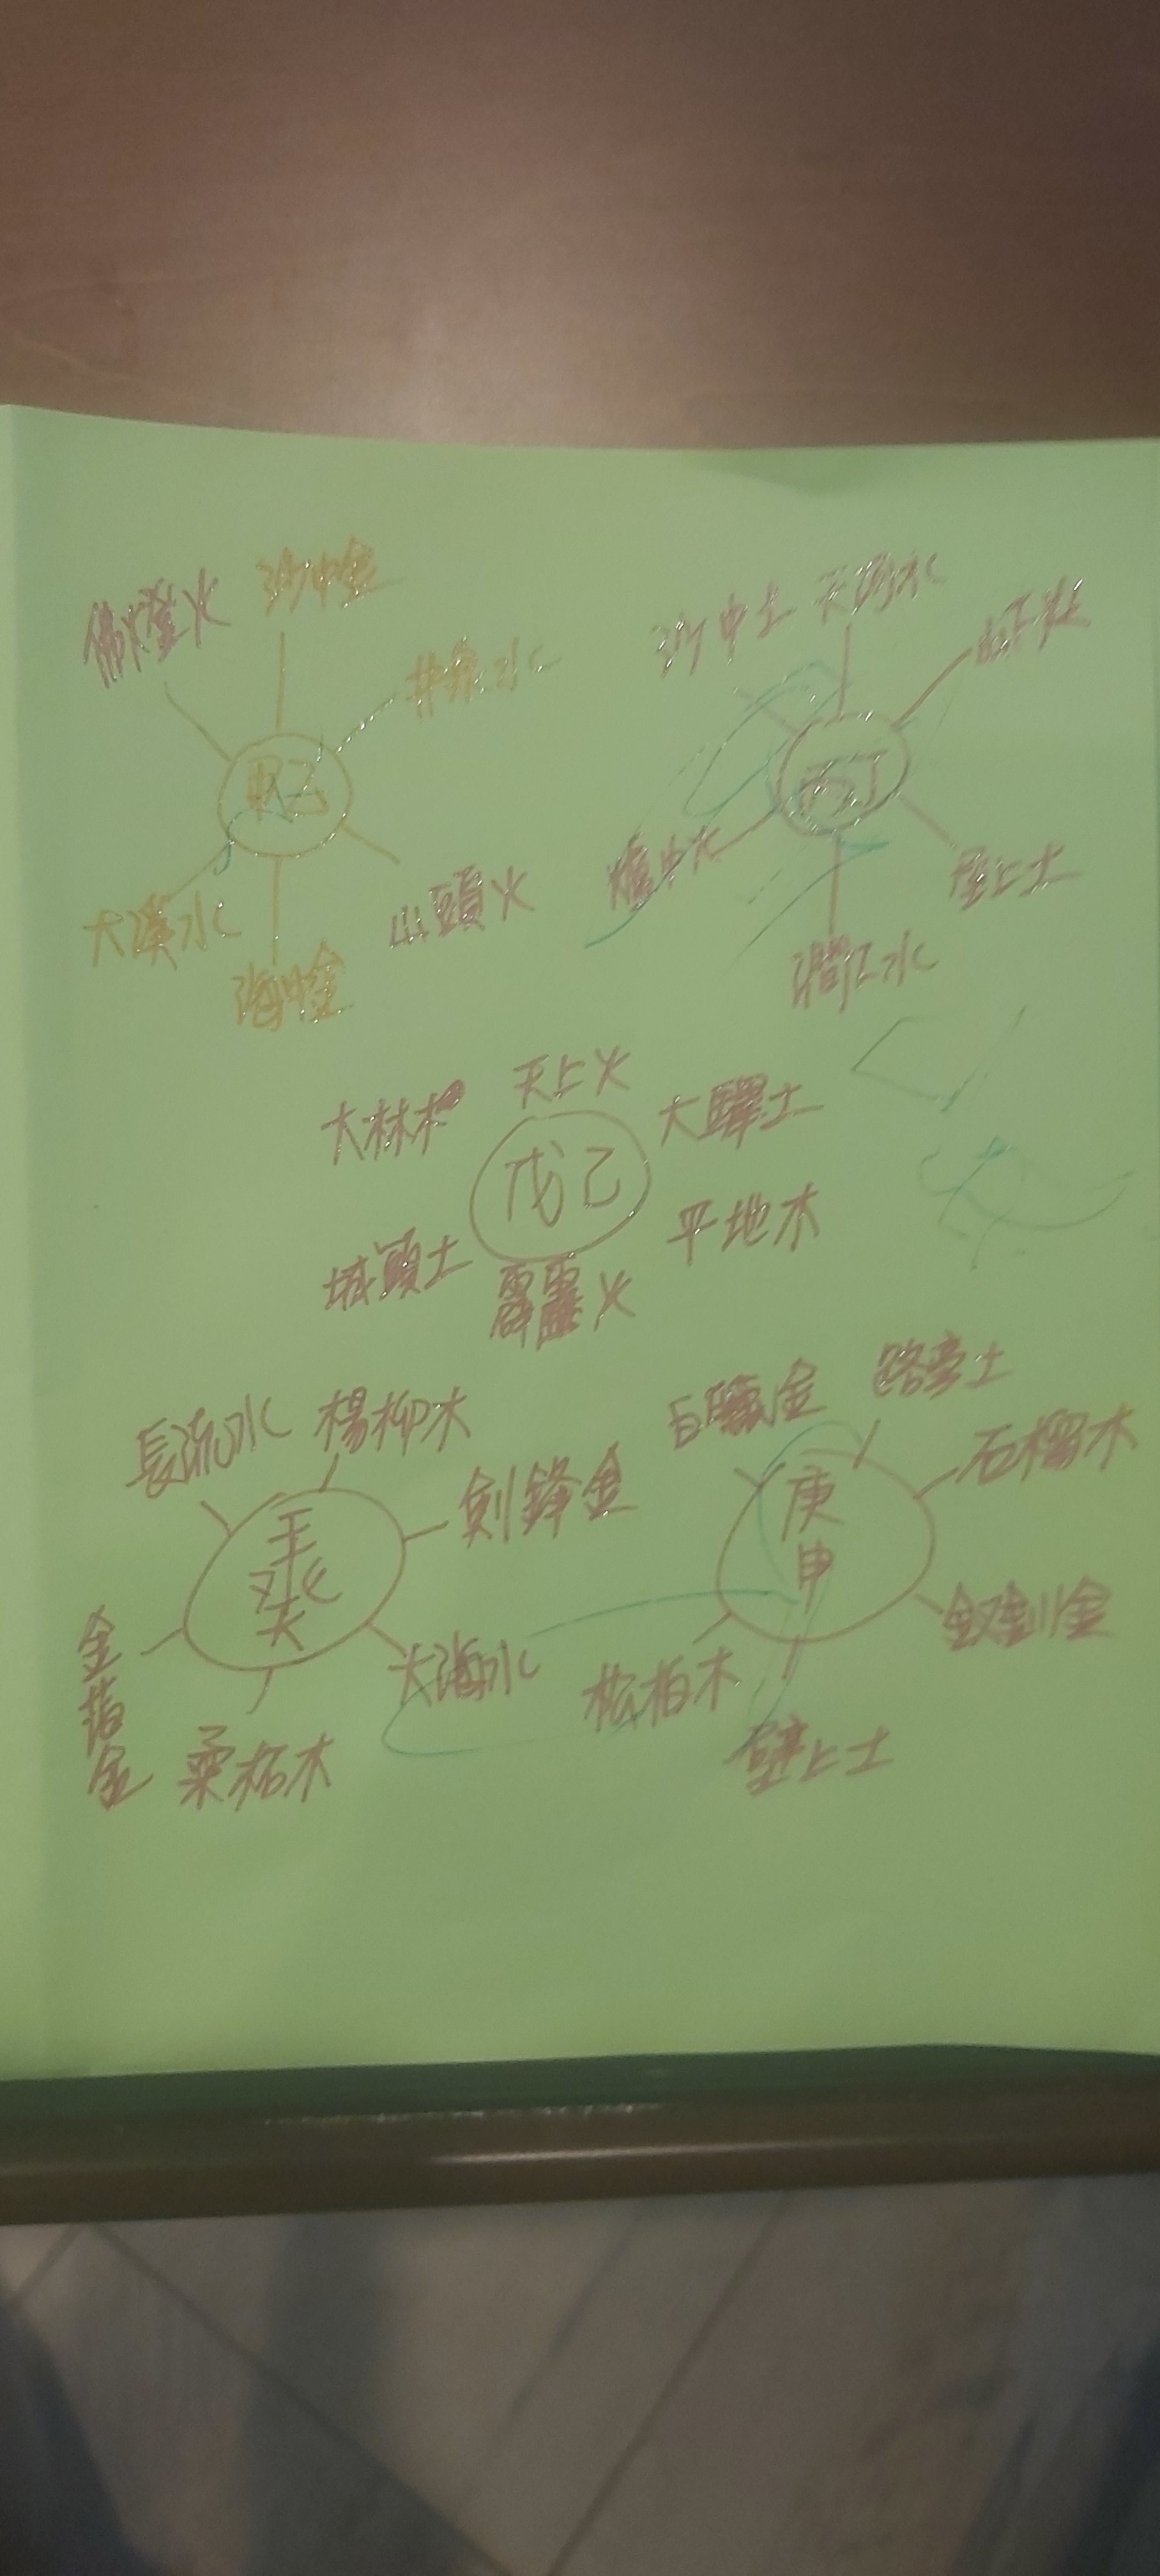 佛燈火 沙中金
井泉水
大溪水
山頭火
海中金
沙中土 天河水
山下火
丙丁
爐中火
屋上土
澗下水
天上火
大林木
大驛土
戊己
平地木
城頭土
霹靂火
長流水 楊柳木
劍鋒金
壬癸
大海水
金箔金
桑柘木
白臘金 路旁土
石榴木
庚申
釵釧金
松柏木
壁上土